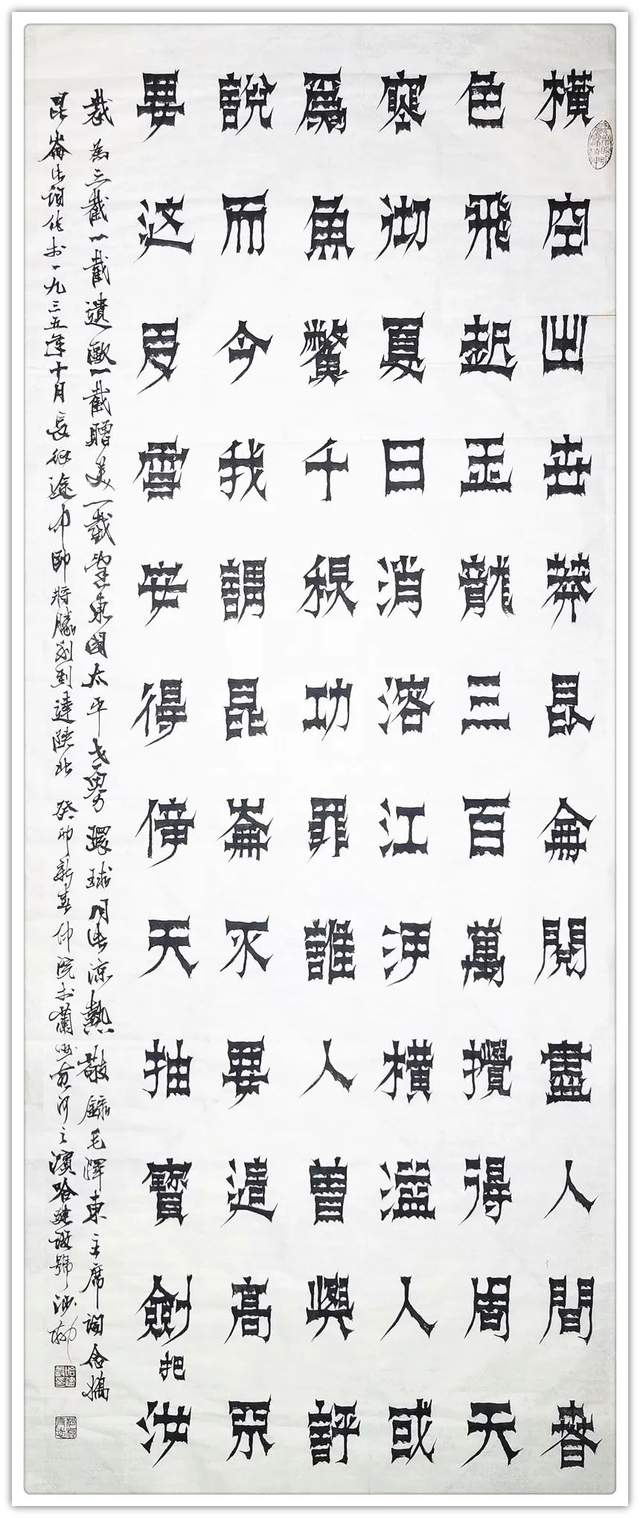 橫空出世莽昆侖閱盡人間春
色飛起玉龍三百萬攪得周天
寒沏夏日消溶江河橫溢人或
爲魚鱉千秋功罪誰人曾與評
說而今我謂昆崙不要這高不
要这多雪安得倚天抽寶劍把汝
裁为三截一截遺歐一截贈美一截還東國太平世界環球同此涼熱敬錄毛澤東主席詞念奴嬌
昆崙此詞作於一九三五年十月長征途中即將勝利到達陝北 癸卯新春仲院书蘭州黄河之濱路建設號沙柳